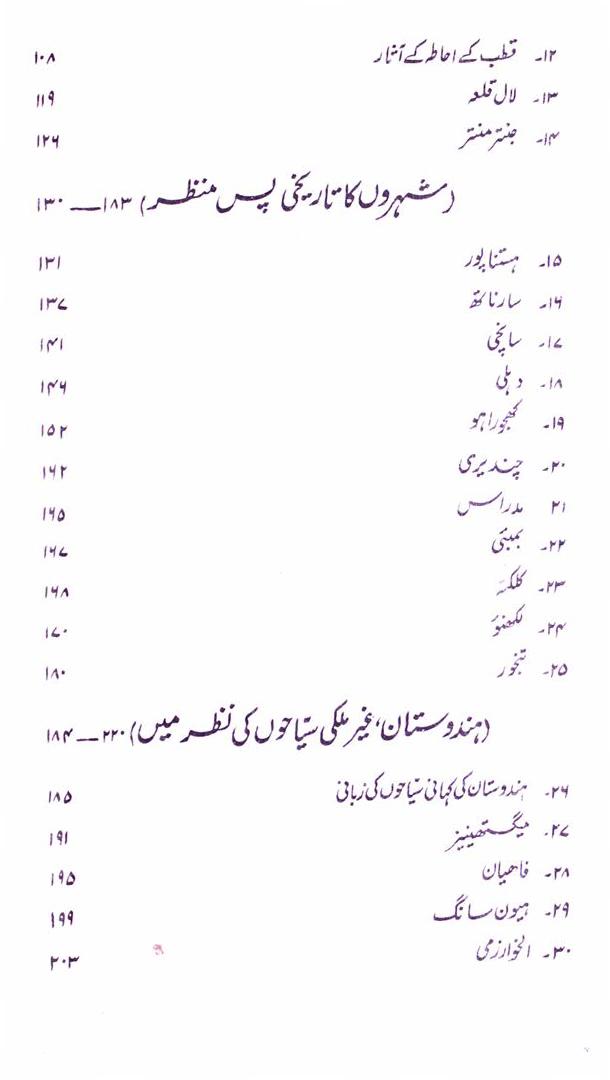 ۱۲۔ قطب کے احاطہ کے آثار ۱۰۸
۱۳۔ لال قلعہ ۱۱۹
۱۴۔ جنتر منتر ۱۲۶
(شہروں کا تاریخی پس منظر) ۱۸۳ــ۱۳۰
۱۵۔ ہستناپور ۱۳۱
۱۶۔ سارناتھ ۱۳۷
۱۷۔ سانچی ۱۴۱
۱۸۔ دہلی ۱۴۶
۱۹۔ کھجوراہو ۱۵۲
۲۰۔ چندیری ۱۶۲
۲۱ مدراس ۱۶۵
۲۲۔ بمبئی ۱۶۷
۲۳۔ کلکتہ ۱۶۸
۲۴۔ لکھنؤ ۱۷۰
۲۵۔ تنجور ۱۸۰
(ہندوستان، غیر ملکی سیّاحوں کی نظر میں) ۲۲۰ــ۱۸۴
۲۶۔ ہندوستان کی کہانی سیّاحوں کی زبانی ۱۸۵
۲۷۔ میگستھینیز ۱۹۱
۲۸۔ فاهیان ۱۹۵
۲۹۔ ہیون سانگ ۱۹۹
۳۰۔ الخوارزمی ۲۰۳